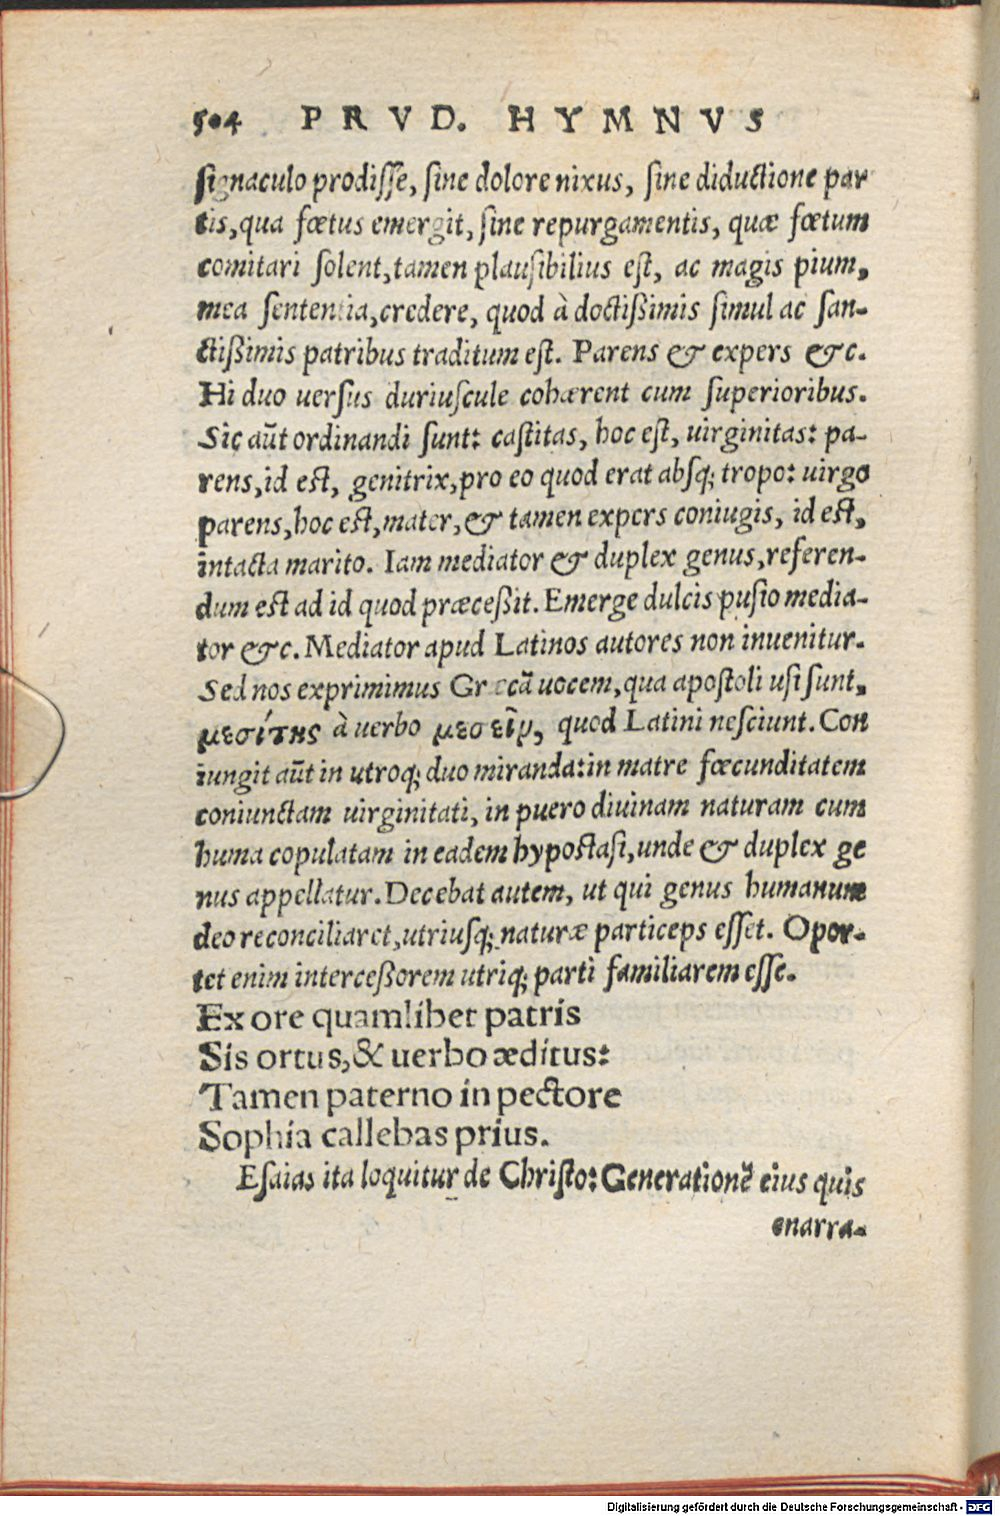 504 PRVD. HYMNVS
signaculo prodisse, sine dolore nixus, sine diductione par
tis, qua fœtus emergit, sine repurgamentis, quæ fœtum
comitari solent, tamen plausibilius est, ac magis pium,
mea sententia, credere, quod à doctißimis simul ac san-
ctißimis patribus traditum est. Parens & expers &c.
Hi duo uersus duriuscule cohærent cum superioribus.
Sic aūt ordinandi sunt: castitas, hoc est, uirginitas: pa-
rens, id est, genitrix, pro eo quod erat absq; tropo: uirgo
parens, hoc est, mater, & tamen expers coniugis, id est,
intacta marito. Iam mediator & duplex genus, referen-
dum est ad id quod præceßit. Emerge dulcis pusio media-
tor &c. Mediator apud Latinos autores non inuenitur.
Sed nos exprimimus Græcā uocem, qua apostoli usi sunt,
μεσίτης à uerbo μεσεῖν, quod Latini nesciunt. Con
iungit aūt in utroq; duo miranda: in matre fœcunditatem
coniunctam uirginitati, in puero diuinam naturam cum
huma copulatam in eadem hypostasi, unde & duplex ge
nus appellatur. Decebat autem, ut qui genus humanum
deo reconciliaret, utriusq; naturæ particeps esset. Opor-
tet enim interceßorem utriq; parti familiarem esse.
Ex ore quamlibet patris
Sis ortus, & uerbo æditus:
Tamen paterno in pectore
Sophia callebas prius.
Esaias ita loquitur de Christo: Generationē eius quis
enarra-
Digitalisierung gefördert durch die Deutsche Forschungsgemeinschaft - DFG